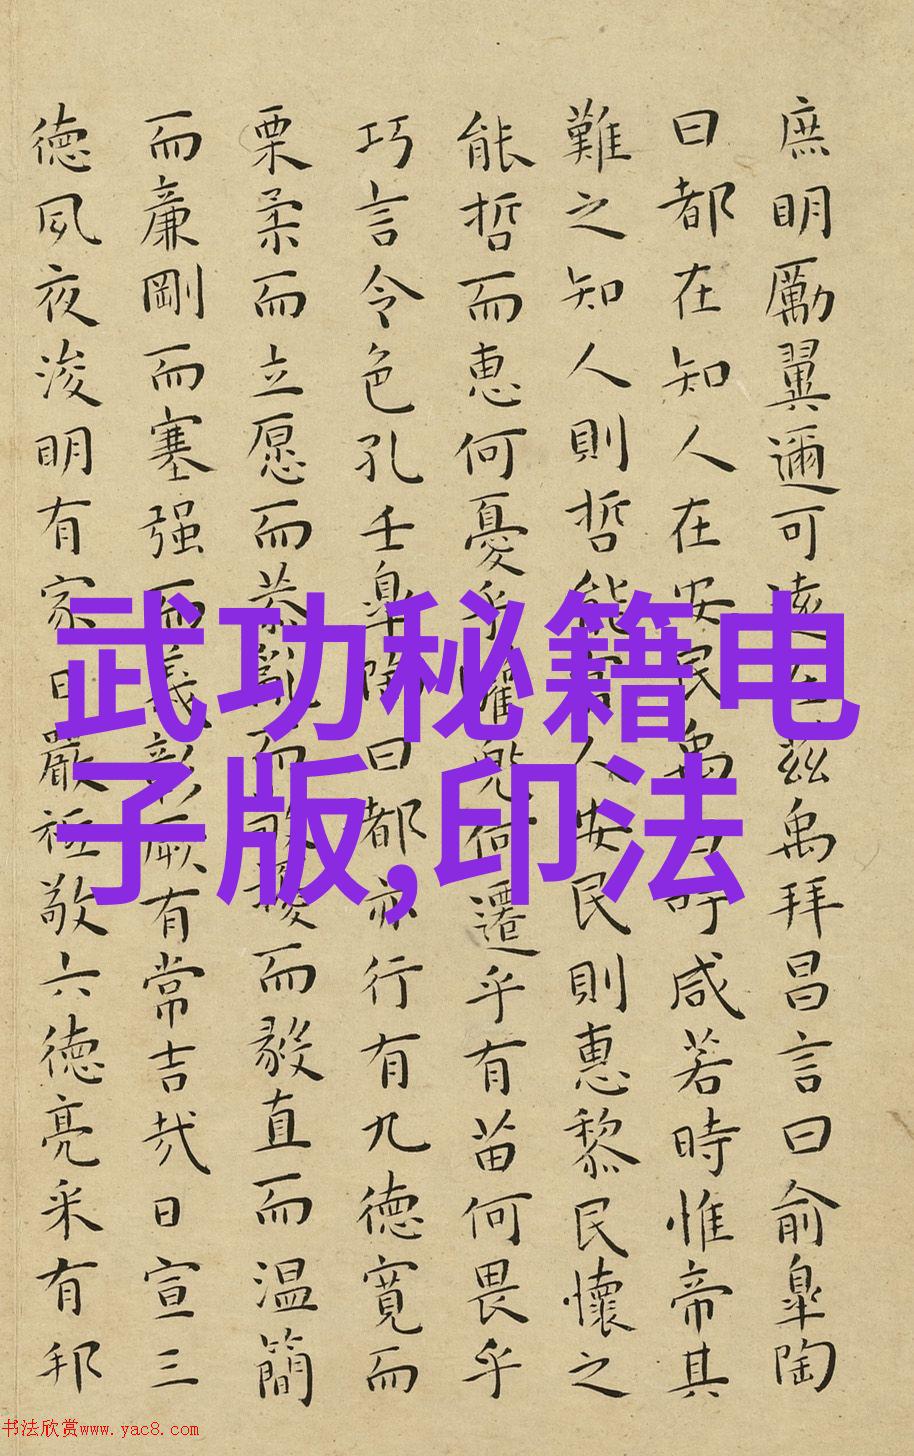 庶明勵翼邇可遠在兹禹拜昌言曰俞皐陶
曰都在知人在安民禹曰吁咸若時惟帝其
難之知人則哲能官人安民則惠黎民懷之
能哲而恵何憂乎驩兜何遷乎有苗何畏乎
巧言令色孔壬皐陶曰都亦行有九徳寛而
栗柔而立愿而恭亂而敬擾而毅直而温簡
而廉剛而塞强而義彰厥有常吉哉日宣三
徳夙夜浚明有家日嚴祗敬六徳亮采有邦
武功秘籍电
子版,印法
书法欣赏www.yac8.com